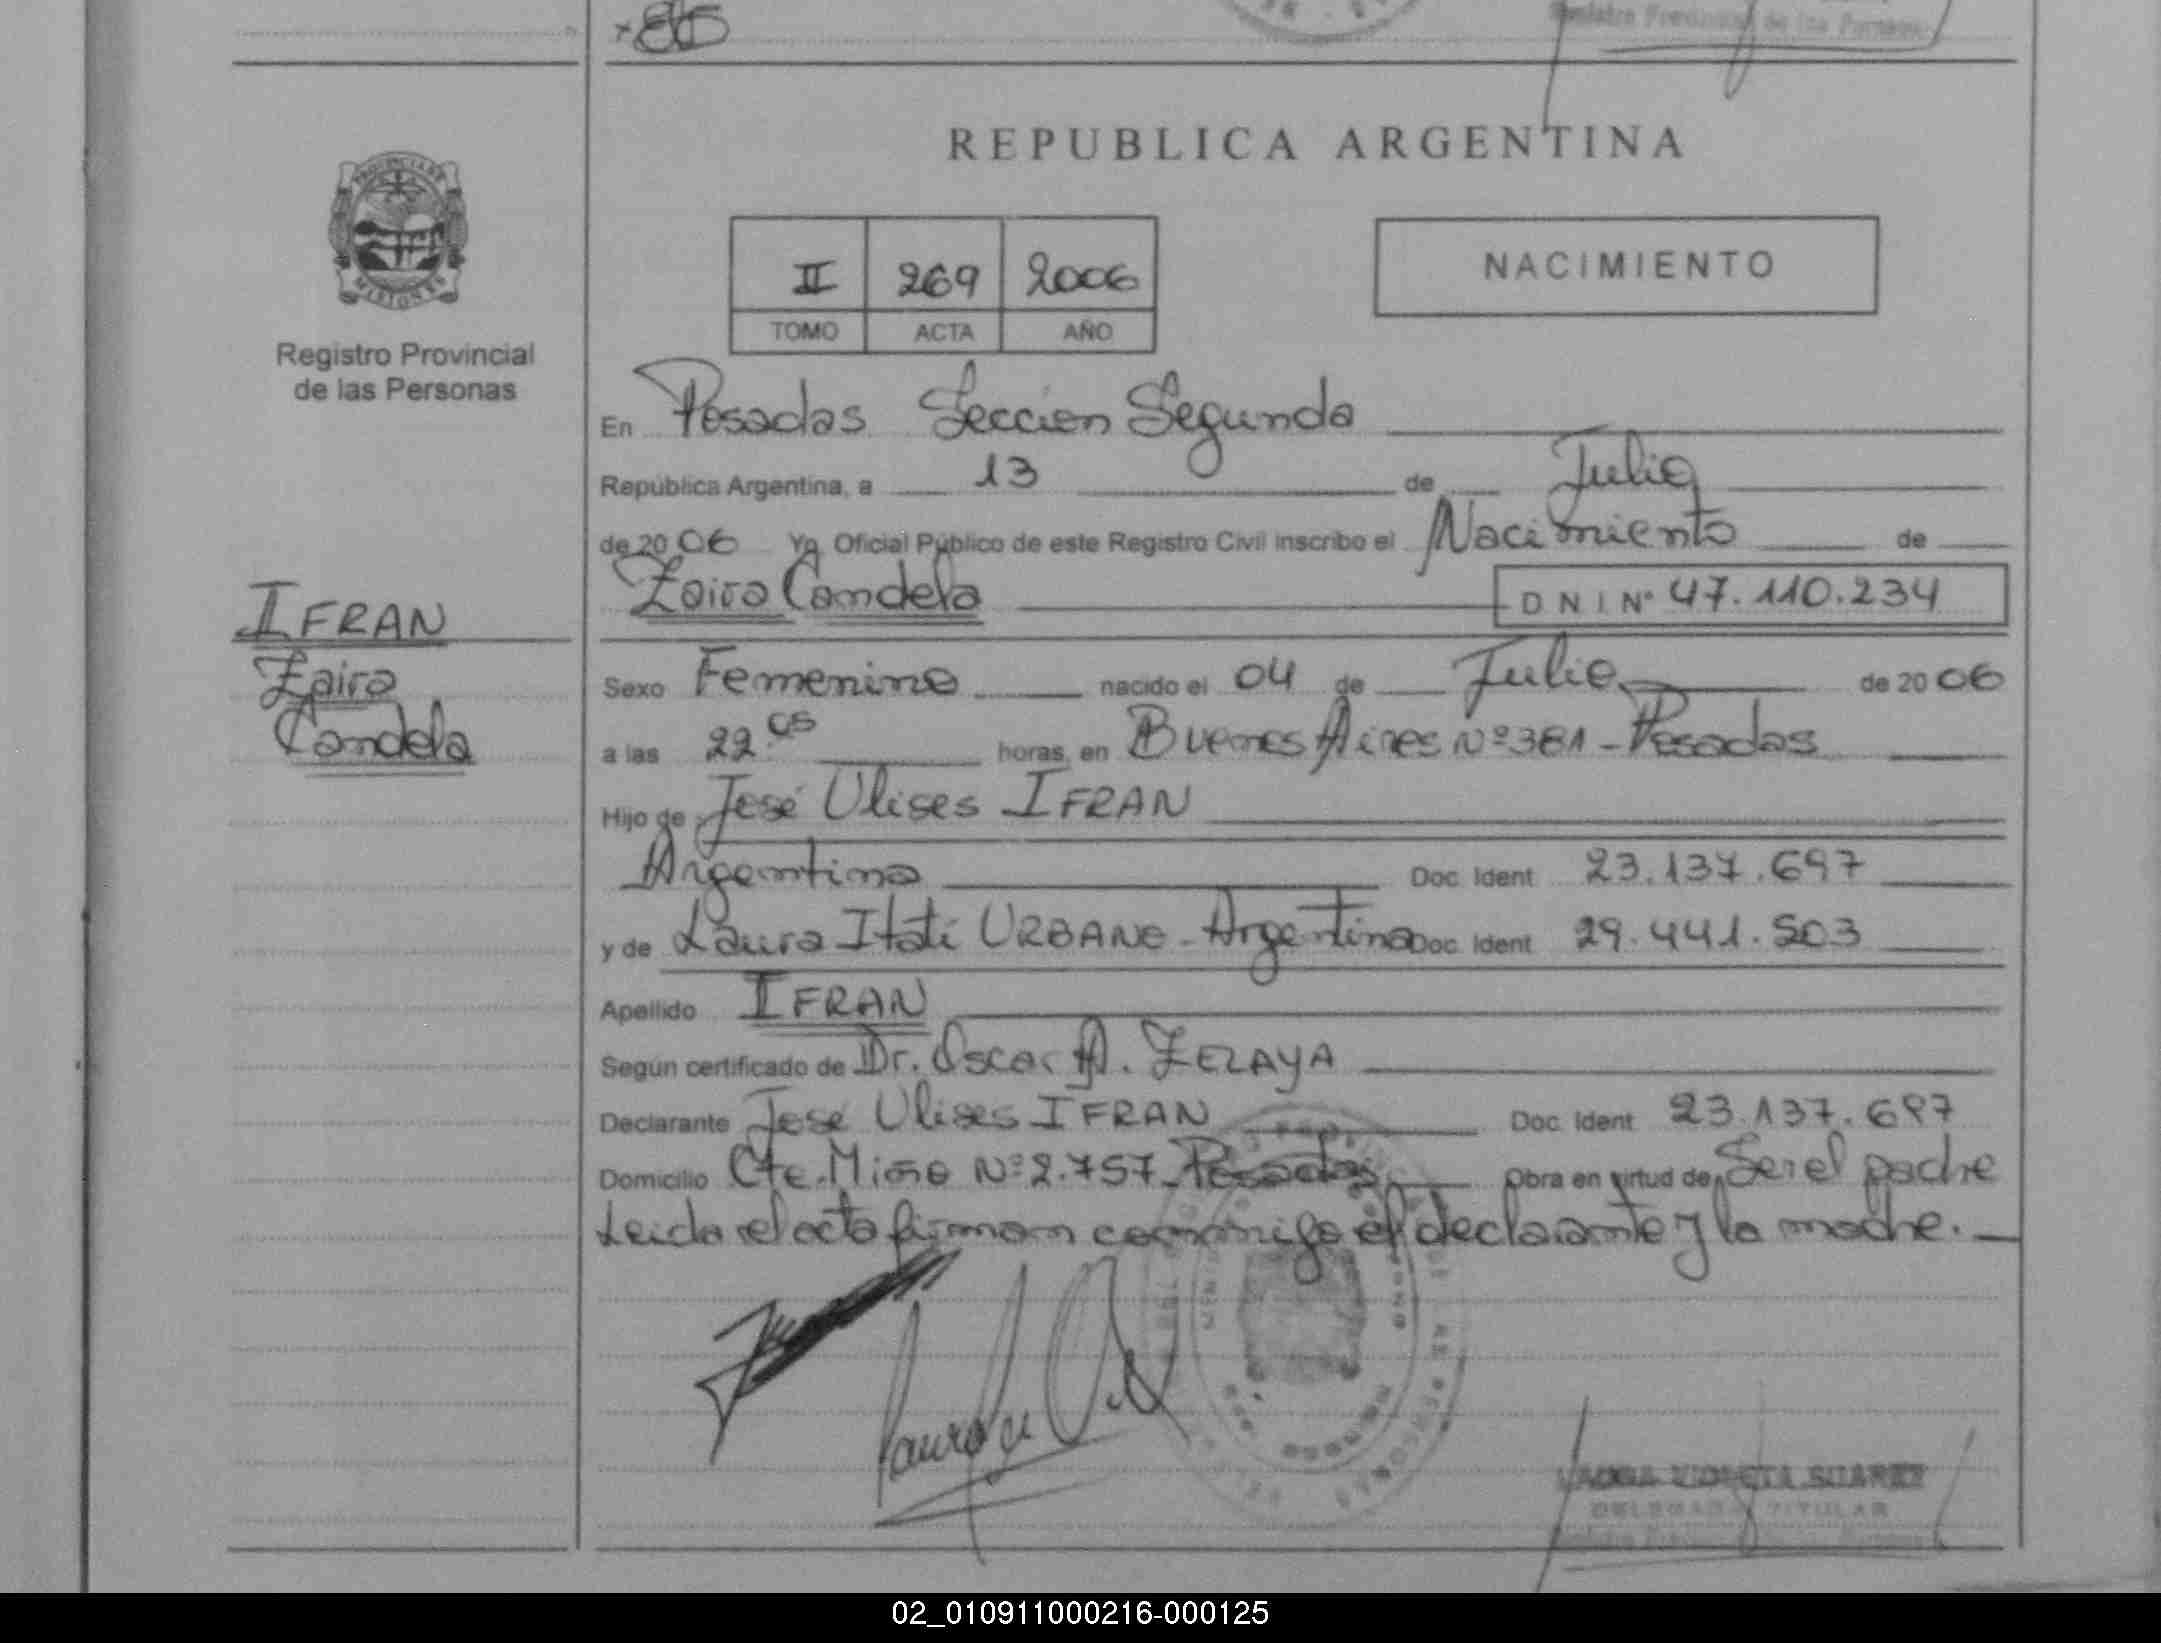 REPUBLICA ARGENTINA
PROVINCIA DE
MISIONES
Registro Provincial
de las Personas
II 269 2006
TOMO ACTA AÑO
NACIMIENTO
En Posadas Sección Segunda
República Argentina, a 13 de Julio
de 20 06 Yo Oficial Público de este Registro Civil inscribo el Nacimiento de
Zaira Candela DNI Nº 47.110.234
IFRAN
Zaira
Candela
Sexo Femenino nacido el 04 de Julio de 20 06
a las 22:05 horas, en Buenos Aires Nº 381 - Posadas
Hijo de José Ulises IFRAN
Argentino Doc. Ident 23.137.697
y de Laura Itatí URBANO - Argentina Doc. Ident 29.441.503
Apellido IFRAN
Según certificado de Dr. Oscar A. ZELAYA
Declarante José Ulises IFRAN Doc. Ident 23.137.697
Domicilio Cte. Miño Nº 2.757 - Posadas Obra en virtud de Ser el padre
Leida el acta firman conmigo el declarante y la madre.
VIOLETA SUAREZ
DELEGADA TITULAR
02_010911000216-000125